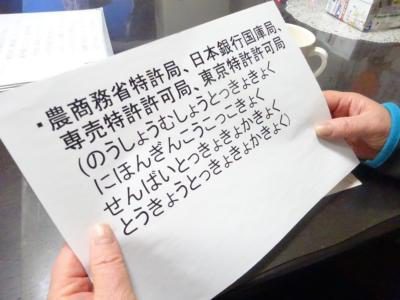 ・農商務省特許局、日本銀行国庫局、
専売特許許可局、東京特許許可局
(のうしょうむしょうとっきょきょく
にほんぎんこうこっこきょく
せんばいとっきょきょかきょく
とうきょうとっきょきょかきょく)